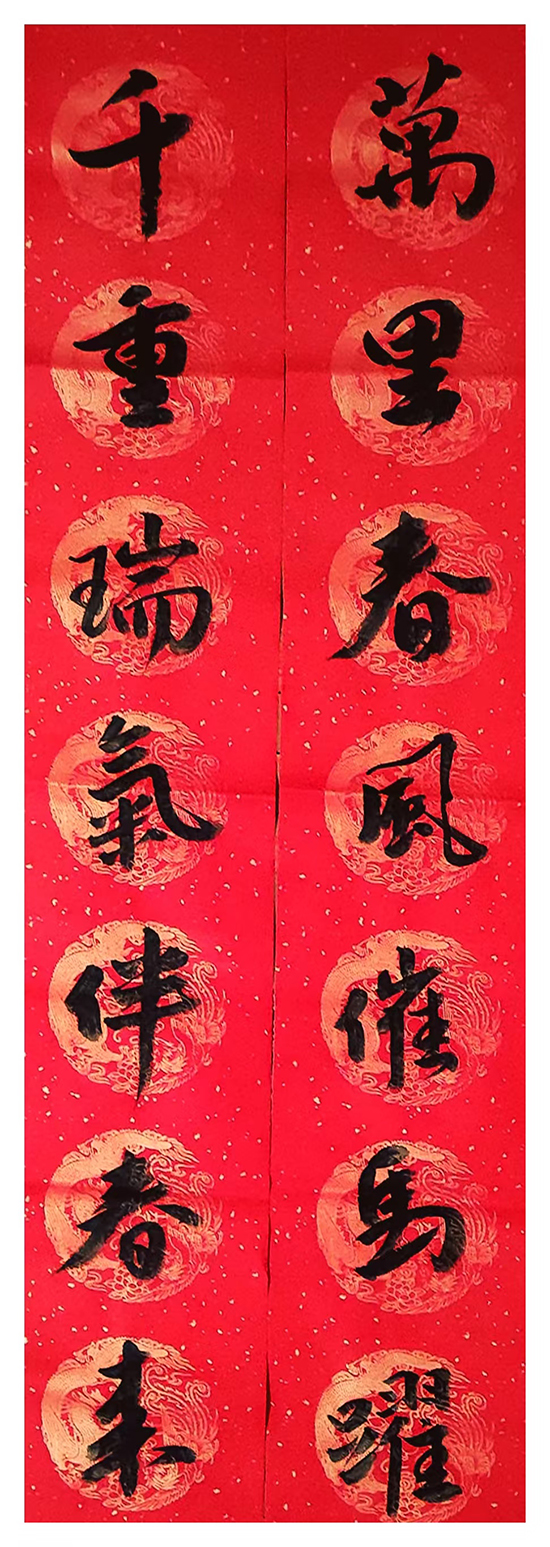 萬里春風催馬躍
千重瑞氣伴春来